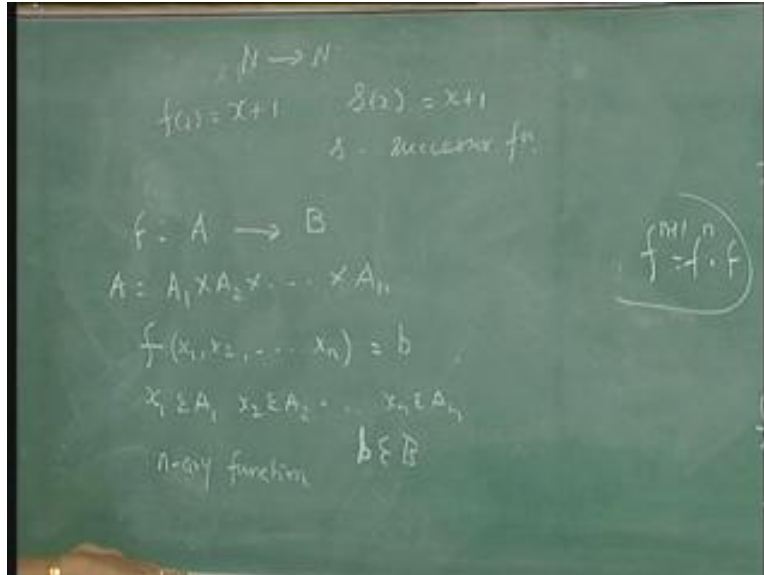 N → N
f(x) = x+1 S(x) = x+1
s - successor fn.
f: A → B
A = A₁ × A₂ × ... × Aₙ
f(x₁, x₂, ... xₙ) = b
x₁ ∈ A₁ x₂ ∈ A₂ ... xₙ ∈ Aₙ
b ∈ B
n-ary function
fⁿ⁺¹ = fⁿ · f